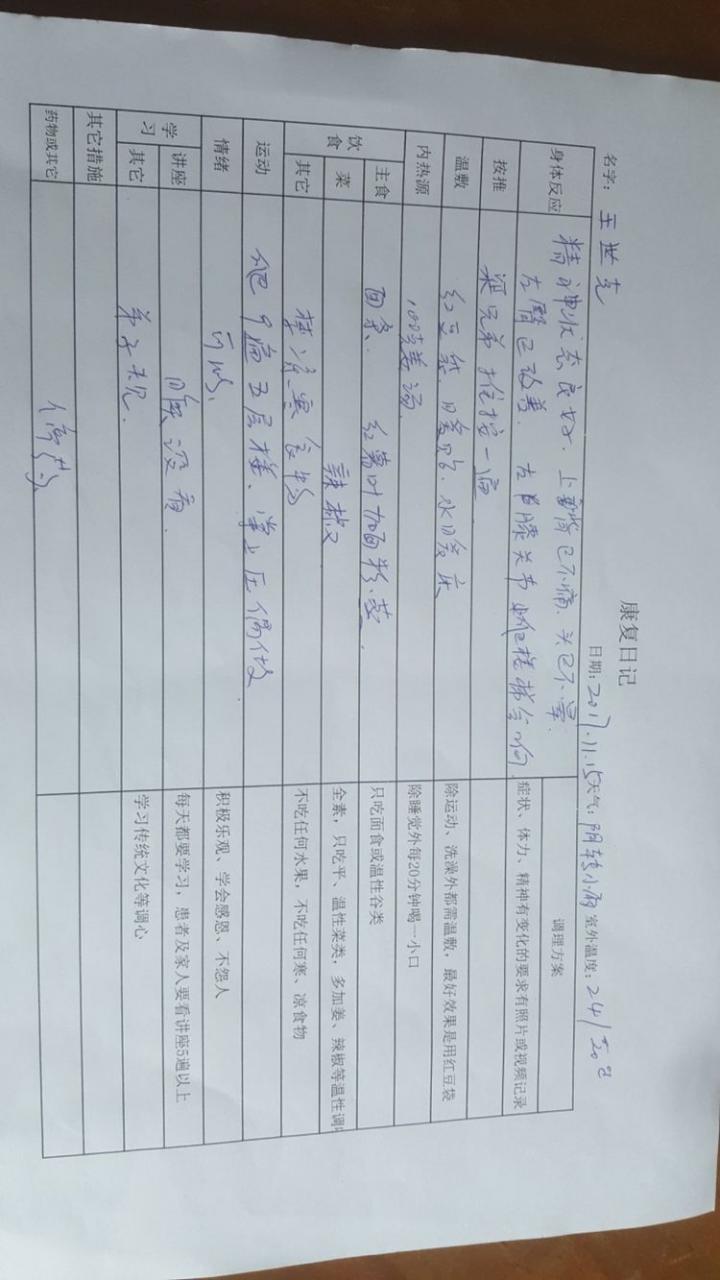 康复日记
名字: 王世克 日期: 2017.11.15 天气: 阴转小雨 室外温度: 24/20℃
调理方案
身体反应 精神状态良好. 上 已不痛. 头已不晕.
左 已改善. 右 膝关节 楼梯
症状、体力、精神有变化的要求有照片或视频记录
按推 梁兄弟推按一遍
温敷 红豆袋. 暖贴. 水暖床 除运动、洗澡外都需温敷，最好效果是用红豆袋
内热源 姜汤. 除睡觉外每20分钟喝一小口
饮食 主食 面条、 红薯叶加面粉. 蒸. 只吃面食或温性谷类
菜 辣椒 全素，只吃平、温性菜类，多加姜、辣椒等温性调
其它 禁凉寒食物 不吃任何水果，不吃任何寒、凉食物
运动 爬 遍五层楼、掌上压偶做.
情绪 可以、 积极乐观、学会感恩、不怨人
学习 讲座 没有. 每天都要学习，患者及家人要看讲座5遍以上
其它 弟子规. 学习传统文化等调心
其它措施
药物或其它 停药、